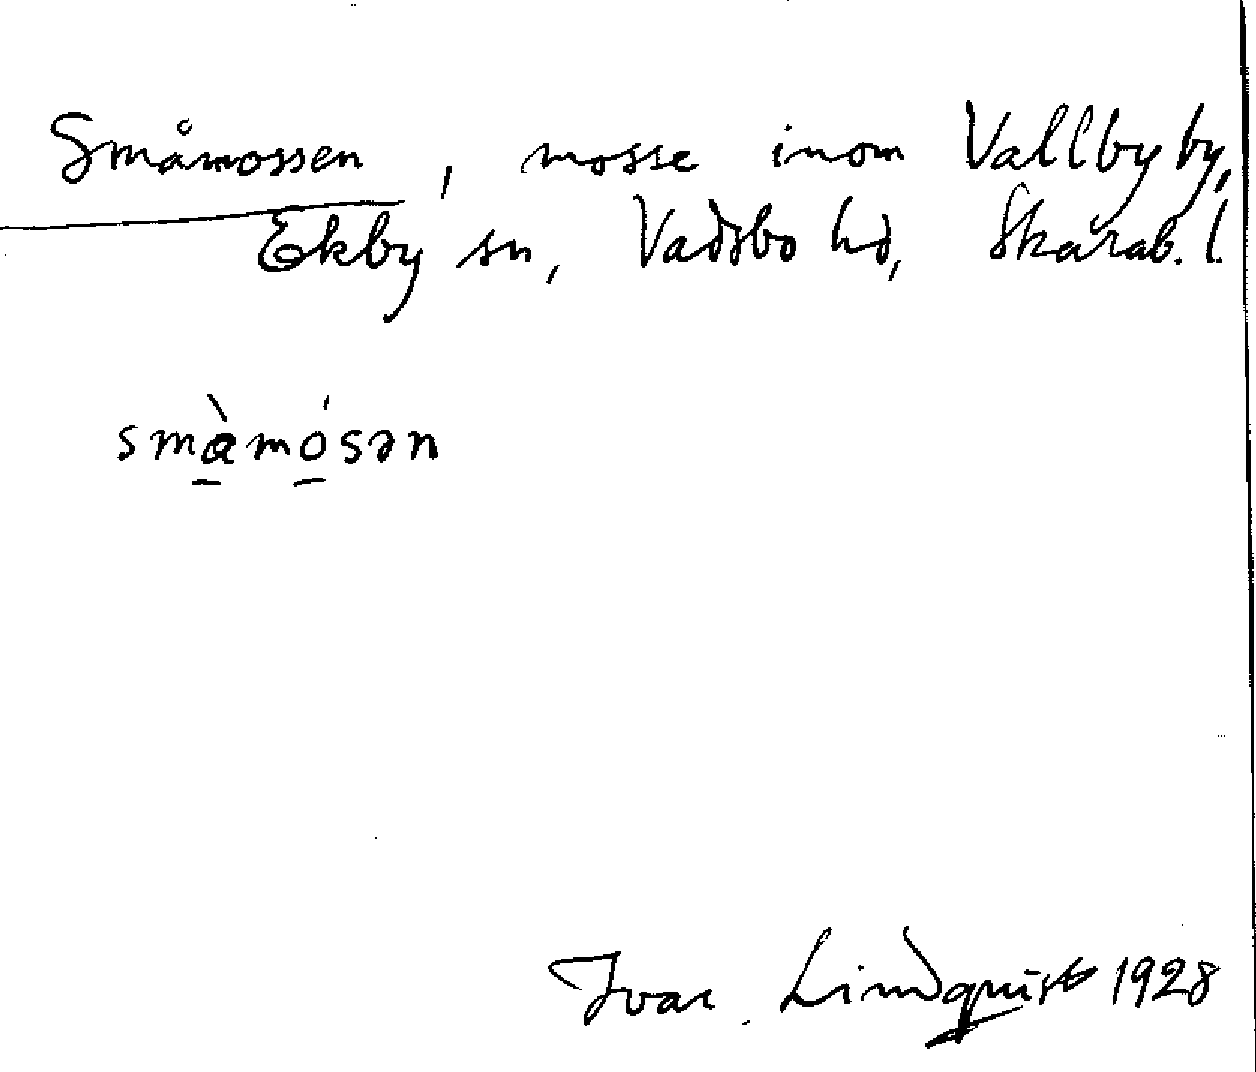 Småmossen, mosse inom Vallby by,
Ekby sn, Vadsbo hd, Skarab. l.
smàmósən
Ivar Lindquist 1928